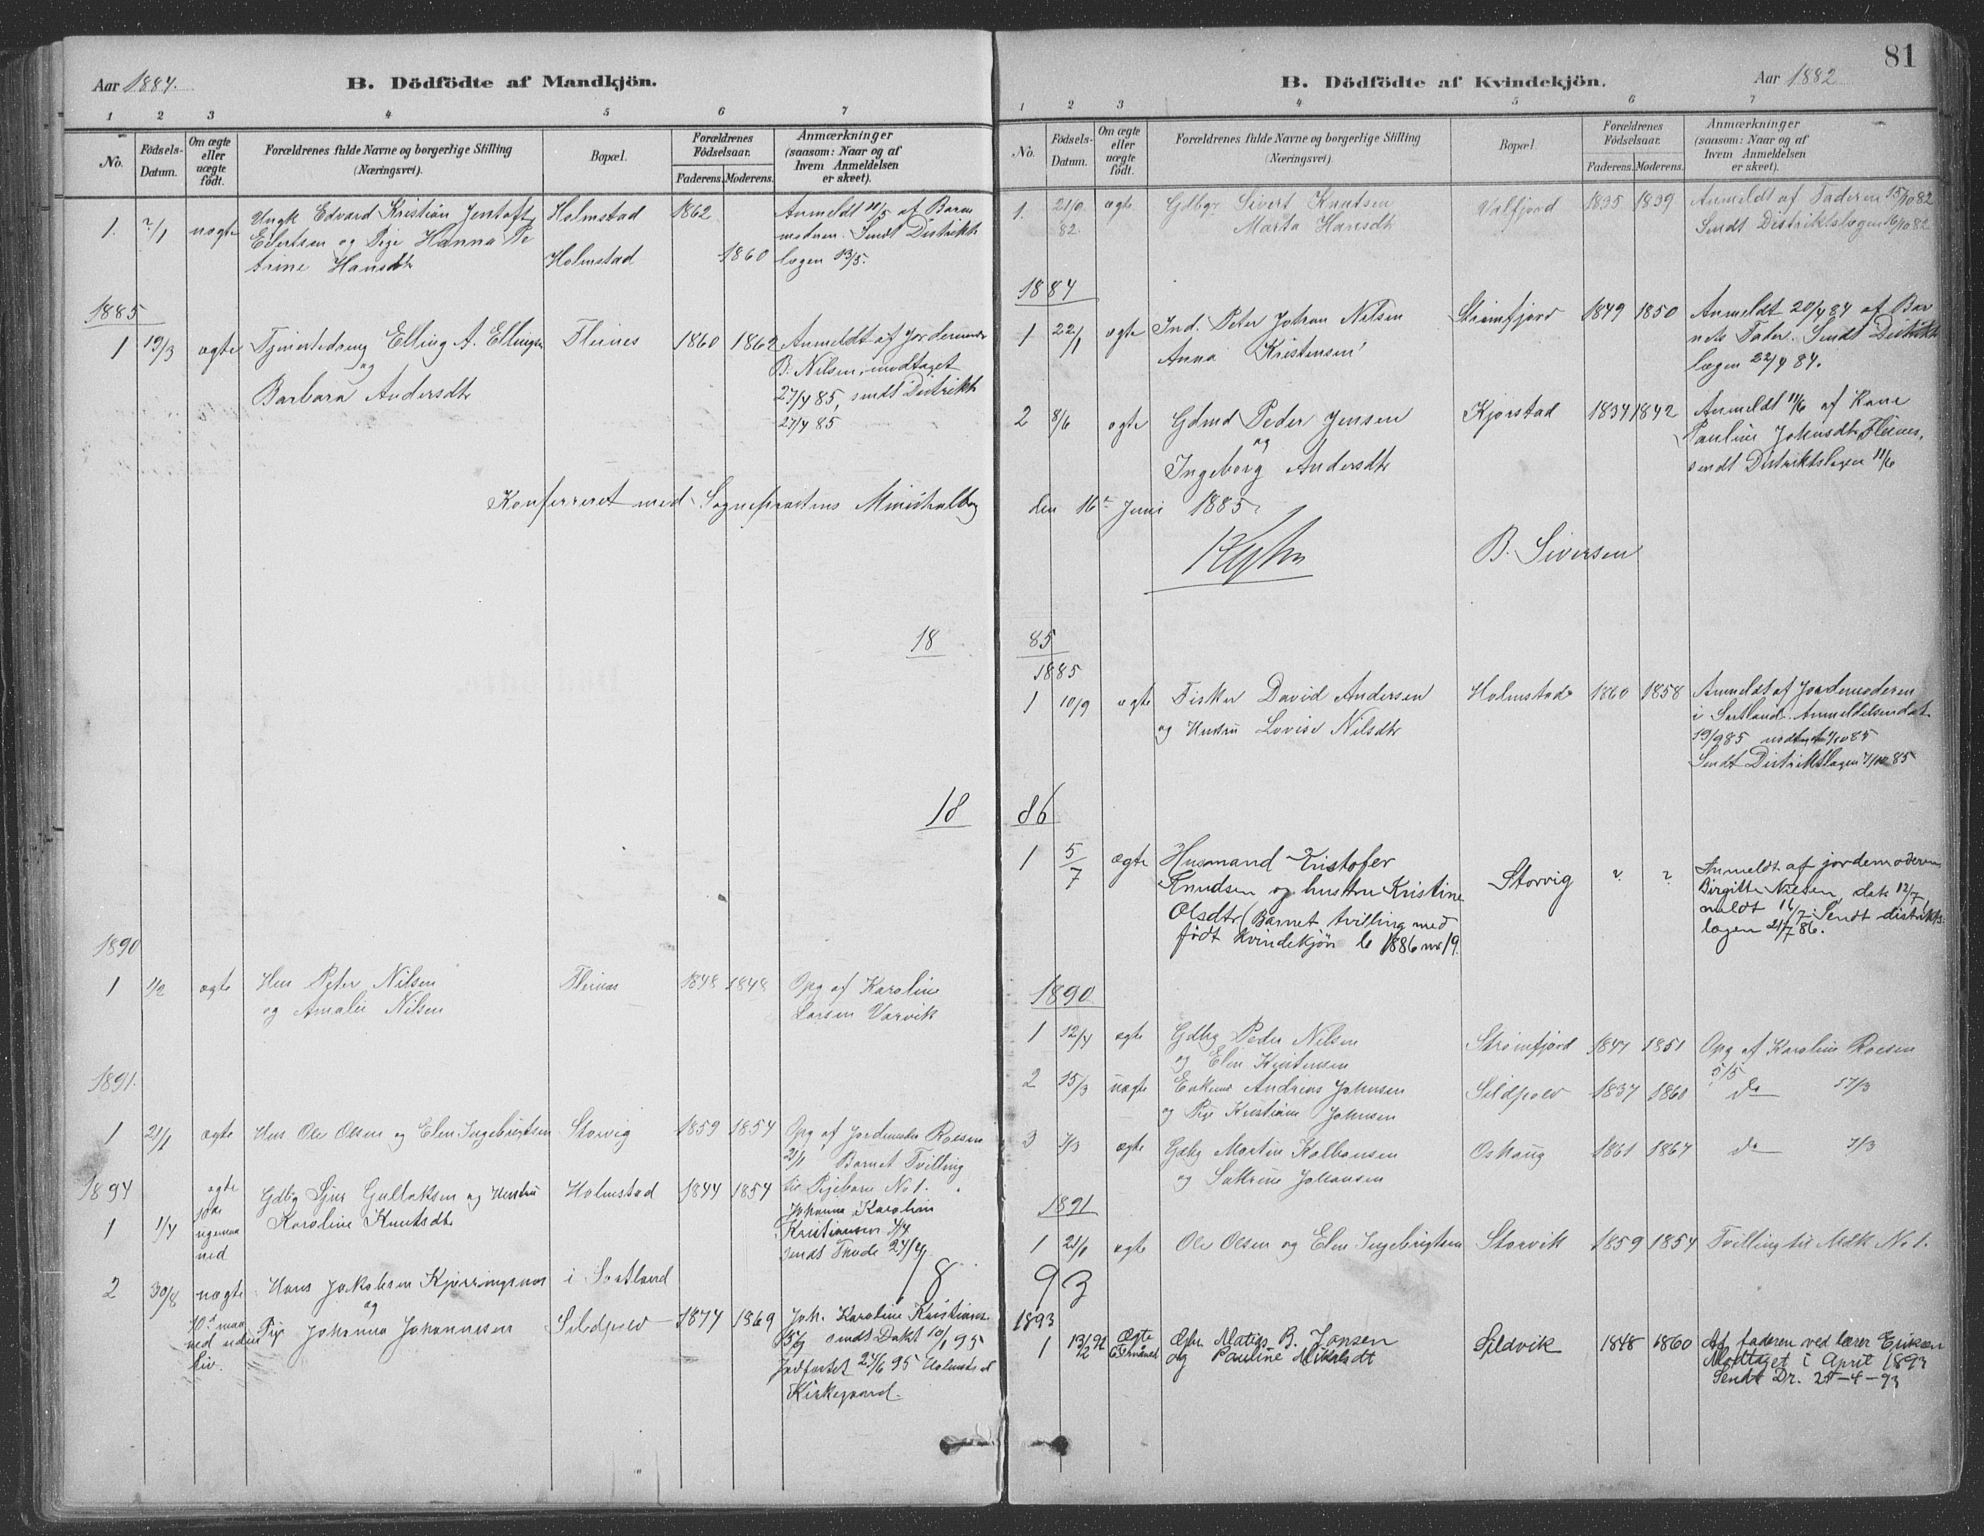 Aar 1884.
B. Dödfödte af Mandkjön.
1 2 3 4 5 6 7
No.
Födsels-Datum.
Om ægte eller uægte födt.
Forældrenes fulde Navne og borgerlige Stilling (Næringsvei).
Bopæl.
Forældrenes Födselsaar.
Faderens. Moderens.
Anmærkninger (saasom: Naar og af hvem Anmeldelsen er skeet).
1. 2/1 uægte Ungk Edvard Kristian Jentoft Holmstad 1862 Anmeldt 11/5 af Barne
Eilertsen og Pige Hanna Pe moderen. Sendt Distrikts
trine Hansdtr Holmstad 1860 lægen 13/5.
1885
1 19/3 ægte Tjenestedreng Elling A. Ellingsen Fleines 1860 1862 Anmeldt af Jordemoder
og B. Nilsen, modtaget
Barbara Andersdtr 27/4 85, sendt Distrikts
27/4 85
Konfereret med Sognepræstens Ministralbog
18
18
1890
1 1/2 ægte Hus Peter Nilsen Fleines 1848 1848 Opg af Karoline
og Amalie Nilsen Larsen Varvik
1891.
1 21/1 ægte Hus Ole Olsen og Elen Ingebrigtsen Storvig 1859 1854 Opg af Jordemoder Roesen
21/1 Barnet Tvilling
til Pigebarn No 1.
1894
ægte Gdbg Sjur Gullaksen og Hustru Holmstad 1844 1854
1 1/4 Karoline Knutsdtr Johanna Karolin
Kristiansen 4/4
sendt Thode 24/4.
18
2 30/8 uægte Hans Jakobsen Kjerringnes i Sortland
og
10de maaned uden Liv Pige Johanna Johannesen Sildpolv 1874 1869 Joh. Karoline Kristians
sendt Dokt 10/1 95
Jordfæstet 24/6 95 Holmstad
Kirkegaard.
81
B. Dödfödte af Kvindekjön.
Aar 1882
1 2 3 4 5 6 7
No.
Födsels-Datum.
Om ægte eller uægte födt.
Forældrenes fulde Navne og borgerlige Stilling (Næringsvei).
Bopæl.
Forældrenes Födselsaar.
Faderens. Moderens.
Anmærkninger (saasom: Naar og af hvem Anmeldelsen er skeet).
1. 21/0 82. ægte Gdbgr Sivert Knutsen Valfjord 1835 1839 Anmeldt af Faderen 15/10 82
Marta Hansdtr Sendt Distriktslægen 16/10 82
1884
1 22/1 ægte Ind. Peter Johan Nilsen Strømfjord 1849 1850 Anmeldt 20/4 84 af Bar
Anna Kristensen nets Fader. Sendt Distrikts
lægen 22/4 84.
2 8/6 ægte Gdmd Peder Jensen Kjørstad 1834 1842 Anmeldt 11/6 af Kone
og Pauline Johansdtr Fleines,
Ingeborg Andersdtr sendt Distriktslægen 11/6
den 16de Juni 1885.
B. Siversen
85
1885
1 10/9 ægte Fisker David Andersen Holmstad 1860 1858 Anmeldt af Jordemoderen
og Hustru Lovise Nilsdtr i Sortland. Anmeldelsen dat
19/9 85
Sendt Distriktslægen 7/10 85
86
1 5/7 ægte Husmand Kristofer Storvig ? ? Anmeldt af jordemoderen
Knudsen og hustru Kristine Birgitte Nilsen, dat. 12/7,
Olsdtr (Barnet tvilling med meldt 16/7. Sendt distrikts-
født kvindekjøn l 1886 nr 19. lægen 21/7 86.
1890
1 12/4 ægte Gdbg Peder Nilsen Strømfjord 1847 1851 Opg af Karoline Roesen
og Elen Kristensen 5/5
2 15/3 uægte Enkem Andreas Johnsen Sildpolv 1837 1860 do 17/3
og Pige Kristiane Johnsen
3 7/3 ægte Gdbg Martin Kolbansen Oshaug 1861 1864 do 7/3
og Sakrine Johansen
1891
1 21/1 ægte Ole Olsen og Elen Ingebrigtsen Storvik 1859 1854 Tvilling til Mdk No 1.
93
1893
1 13/12 92 Ægte Matias B. Jonsen Sildvik 1848 1860 Af faderen ved lærer Eriksen
og Pauline Mikalsdt Modtaget i April 1893
Sendt Dr. 21-4-93